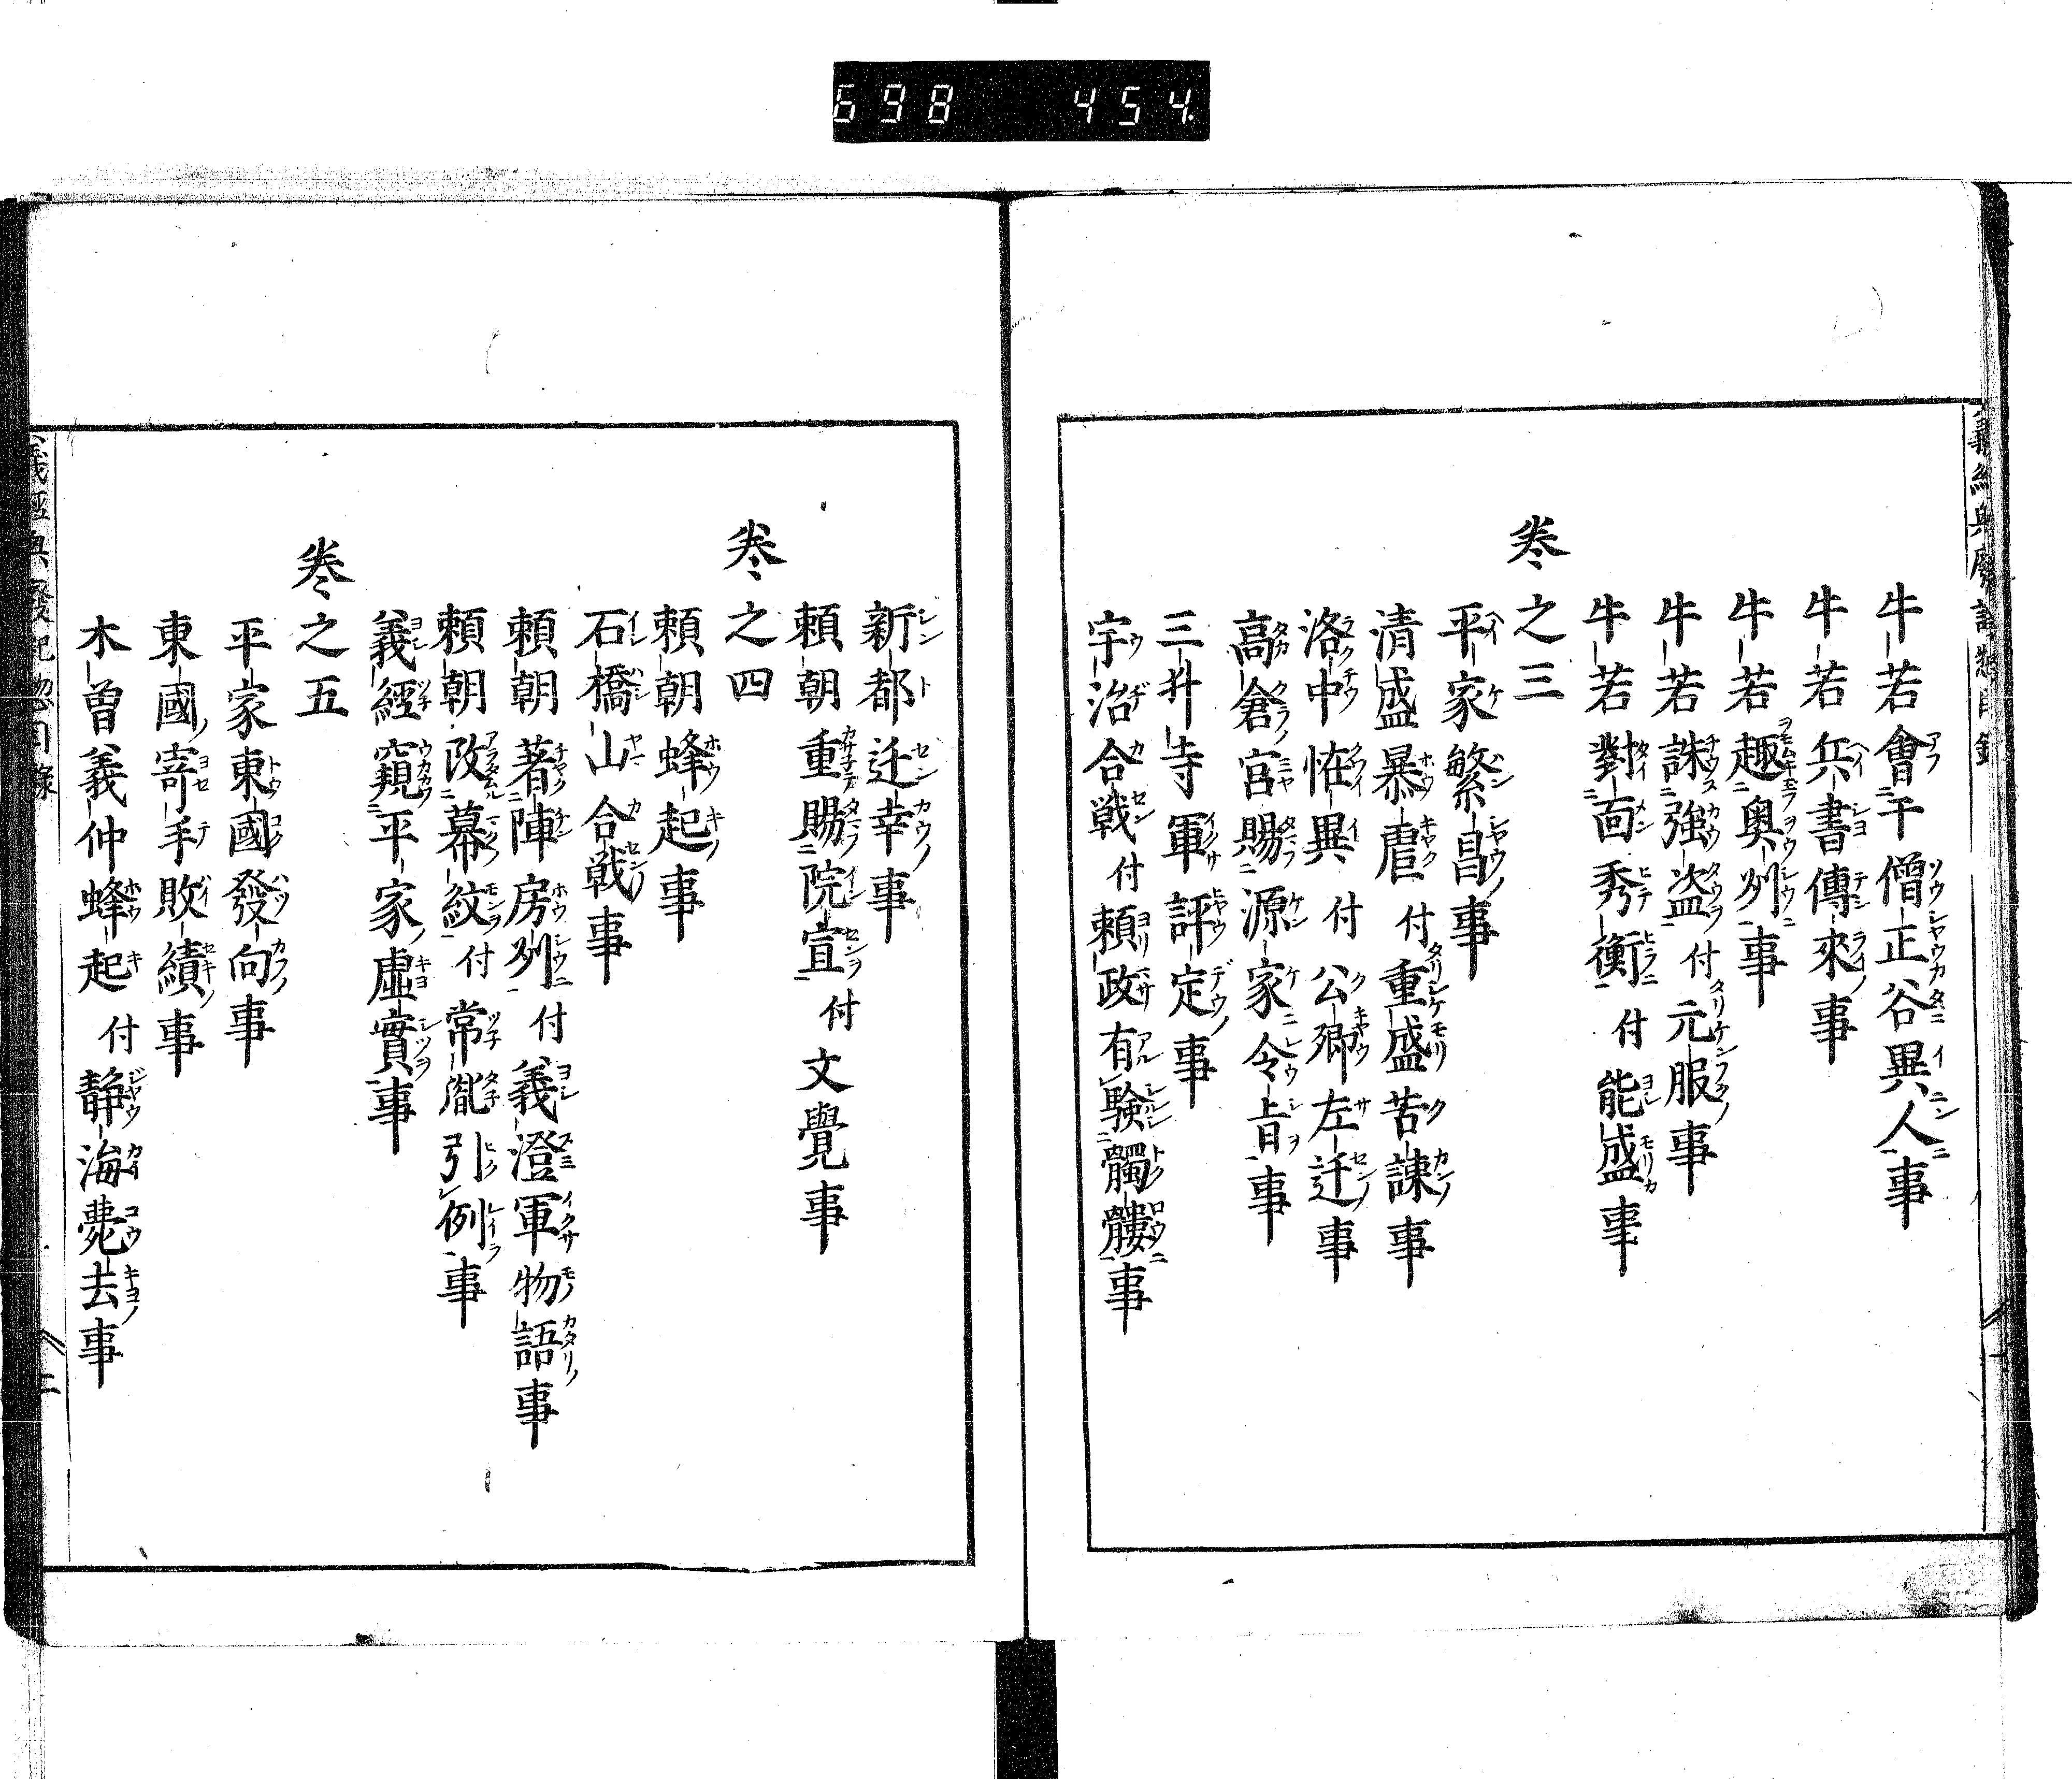 698 454.
牛若會于僧正谷異人事
牛若兵書傳來事
牛若趣奥州事
牛若誅強盗付元服事
牛若對面秀衡付能盛事
巻之三
平家繁昌事
清盛暴虐付重盛苦諫事
洛中恠異付公卿左迁事
高倉宮賜源家令旨事
三井寺軍評定事
宇治合戦付頼政有験髑髏事
新都迁幸事
頼朝重賜院宣付文覺事
巻之四
頼朝蜂起事
石橋山合戦事
頼朝著陣房州付義澄軍物語事
頼朝改幕紋付常胤引例事
義經窺平家虚實事
巻之五
平家東國發向事
東國寄手敗績事
木曽義仲蜂起付静海薨去事